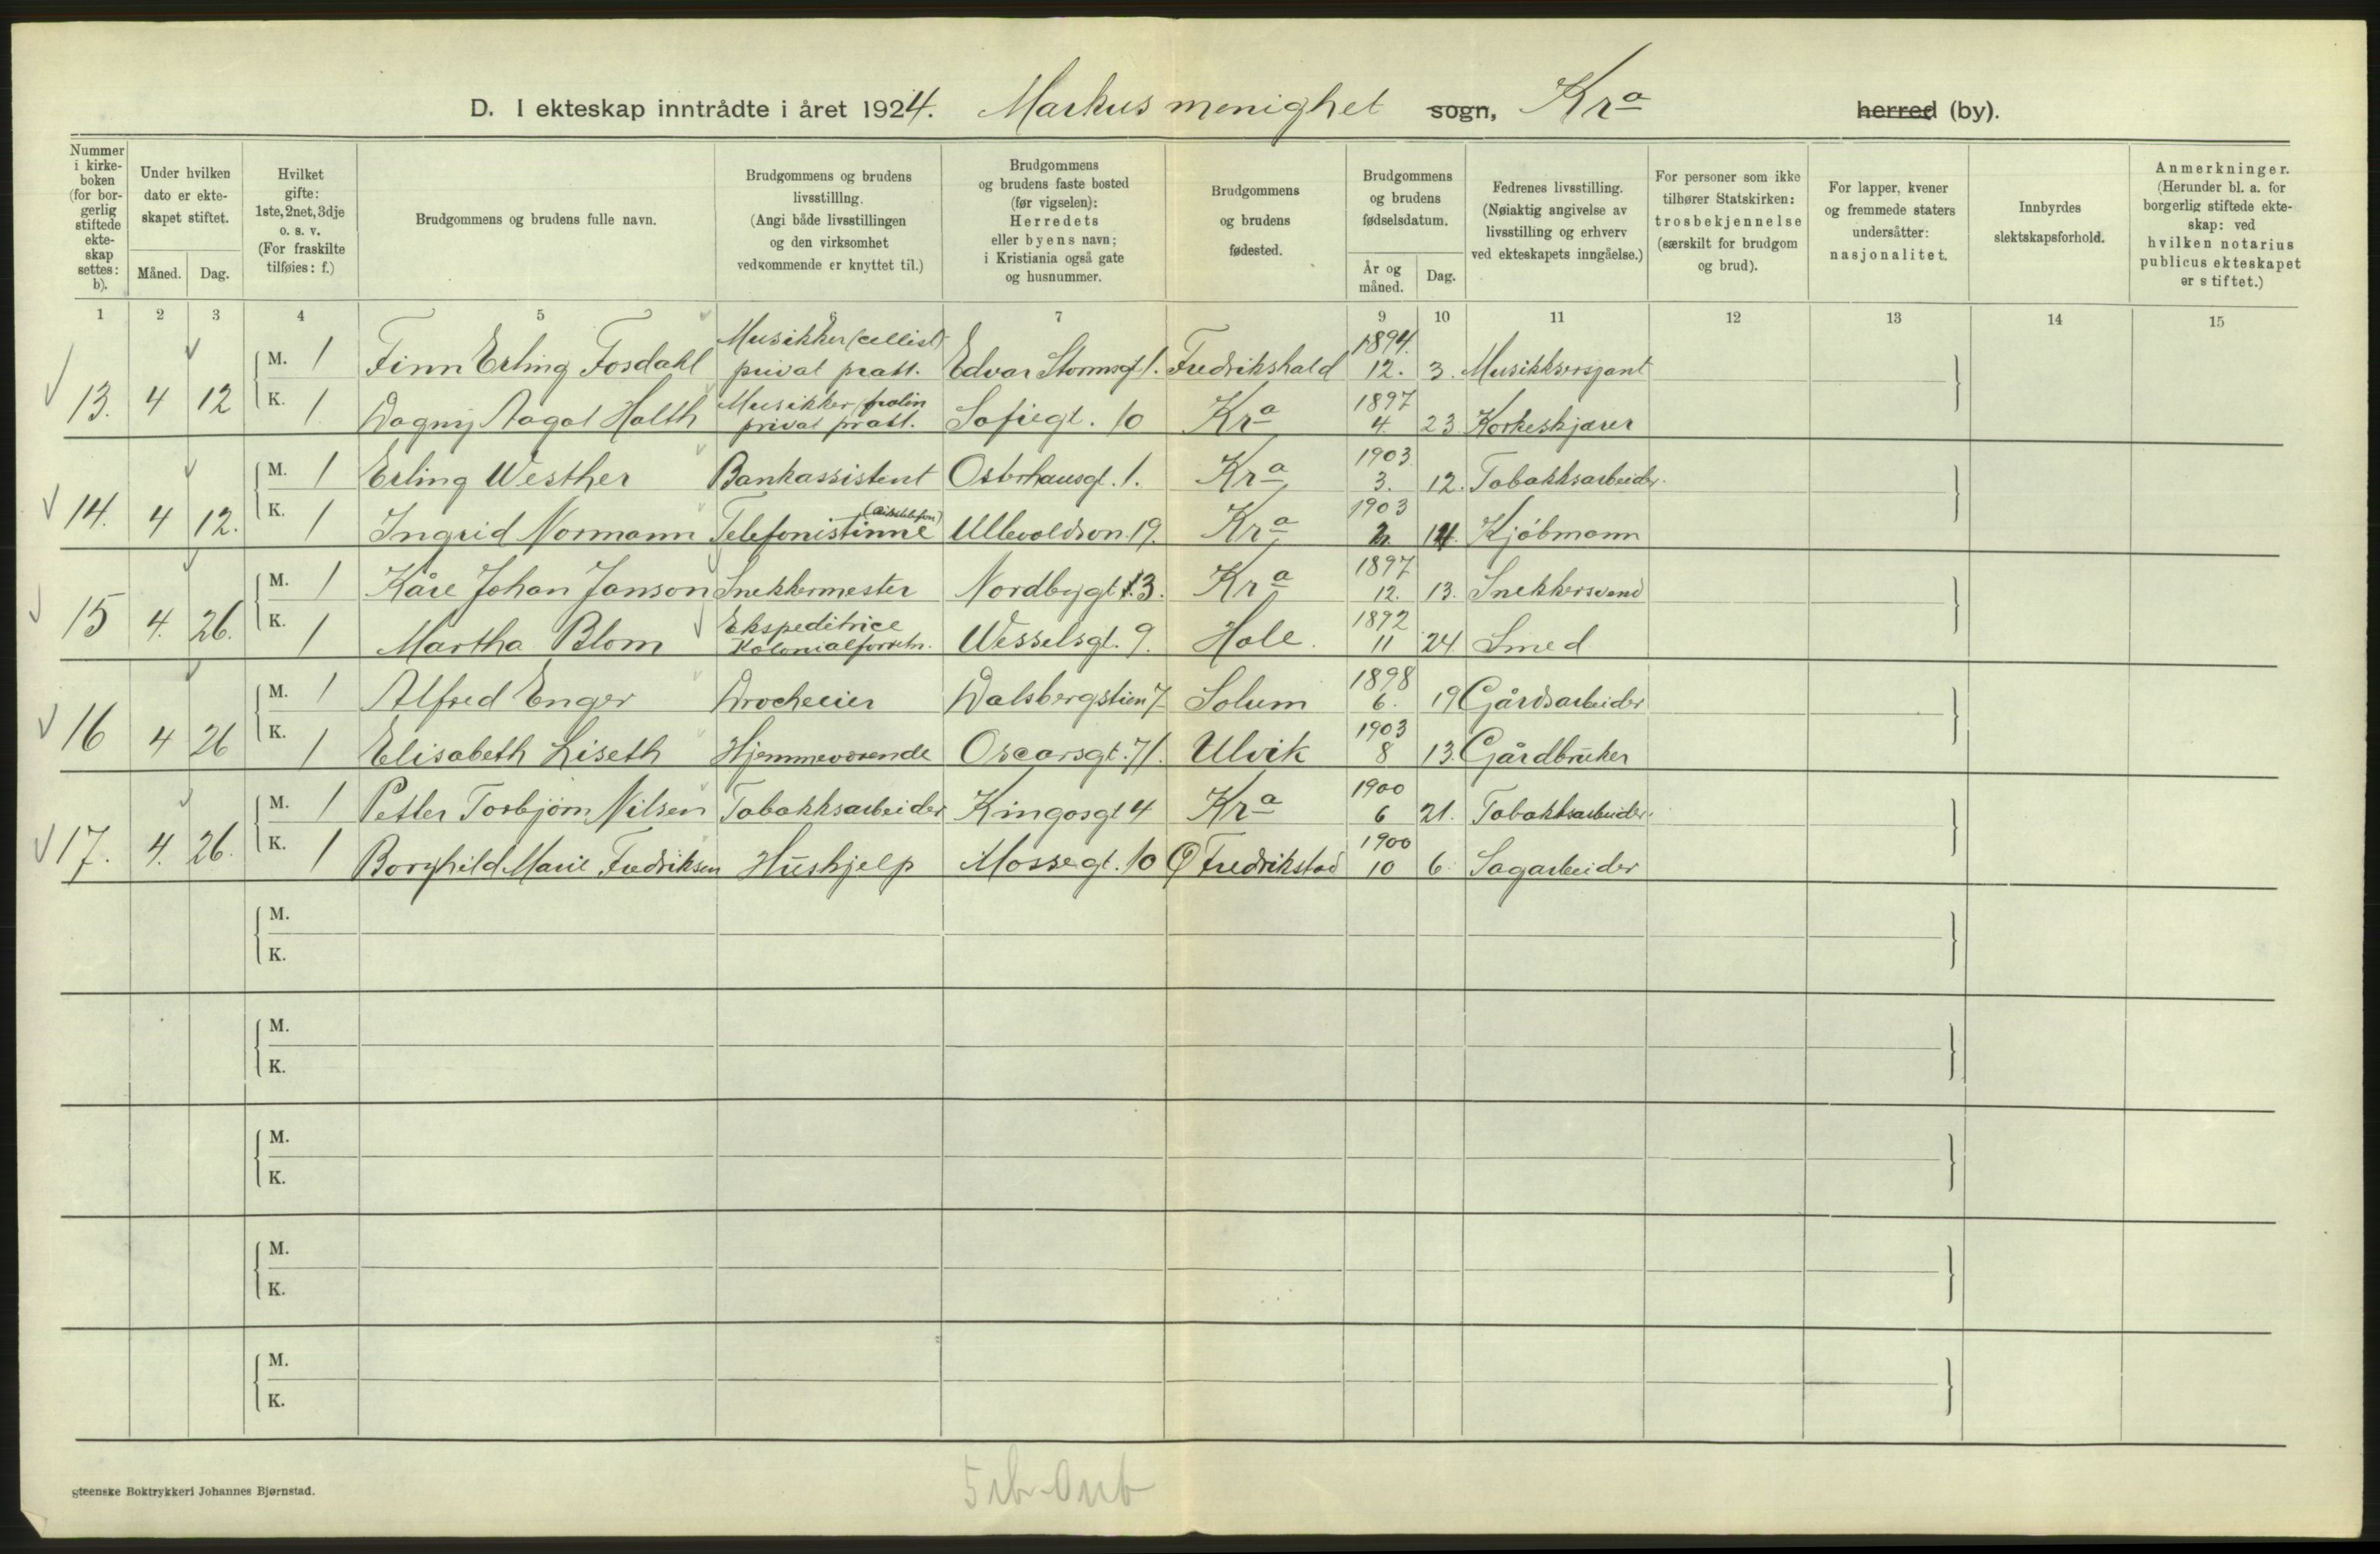 D. I ekteskap inntrådte i året 1924. Markus menighet sogn, Kra herred (by).
Nummer i kirke-boken (for bor-gerlig stiftede ekte-skap settes: b).
Under hvilken dato er ekte-skapet stiftet.
Måned. Dag.
Hvilket gifte: 1ste, 2net, 3dje o. s. v. (For fraskilte tilføies: f.)
Brudgommens og brudens fulle navn.
Brudgommens og brudens livsstilllng. (Angi både livsstillingen og den virksomhet vedkommende er knyttet til.)
Brudgommens og brudens faste bosted (før vigselen): Herredets eller byens navn; i Kristiania også gate og husnummer.
Brudgommens og brudens fødested.
Brudgommens og brudens fødselsdatum.
År og måned. Dag.
Fedrenes livsstilling. (Nøiaktig angivelse av livsstilling og erhverv ved ekteskapets inngåelse.)
For personer som ikke tilhører Statskirken: trosbekjennelse (særskilt for brudgom og brud).
For lapper, kvener og fremmede staters undersåtter: nasjonalitet.
Innbyrdes slektskapsforhold.
Anmerkninger. (Herunder bl. a. for borgerlig stiftede ekte-skap: ved hvilken notarius publicus ekteskapet er stiftet.)
1 2 3 4 5 6 7 9 10 11 12 13 14 15
13. 4 12
M. 1 Finn Erling Fosdahl Musikker (cellist) privat pratt. Edvar Stormsgt 1. Fredrikshald 1894. 12. 3. Musikksersjant
K. 1 Dagny Aagot Holth Musikker privat pratt. Sofiegt. 10 Kra 1897 4. 23 Korkeskjærer
14. 4 12.
M. 1 Erling Westher Bankassistent Osterhausgt. 1. Kra 1903 3. 12. Tobakksarbeider.
K. 1 Ingrid Normann Telefonistinne Ullevoldsvn. 19. Kra 1903 2. 14. Kjöbmann
15 4. 26.
M. 1 Kåre Johan Janson Snekkermester Nordbygt 13. Kra 1897 12. 13. Snekkersvend
K. 1 Martha Blom Ekspeditrice Kolonialforretn. Wesselsgt. 9. Hole. 1892 11 24 Smed
16 4 26
M. 1 Alfred Enger Drocheeier Dalsbergstien 7 Solum 1898 6. 19 Gårdsarbeider
K. 1 Elisabeth Liseth Hjemmeværende Oscarsgt. 71. Ulvik 1903 8 13. Gårdbruker
17. 4. 26.
M. 1 Petter Torbjörn Nilsen Tobakksarbeider Kingosgt 4 Kra 1900 6 21. Tobakksarbeider.
K. 1 Borghild Marie Fredriksen Hushjelp Mossegt. 10 Fredrikstad 1900 10 6. Sagarbeider
M.
K.
M.
K.
M.
K.
M.
K.
M.
K.
gteenske Boktrykkeri Johannes Bjørnstad.